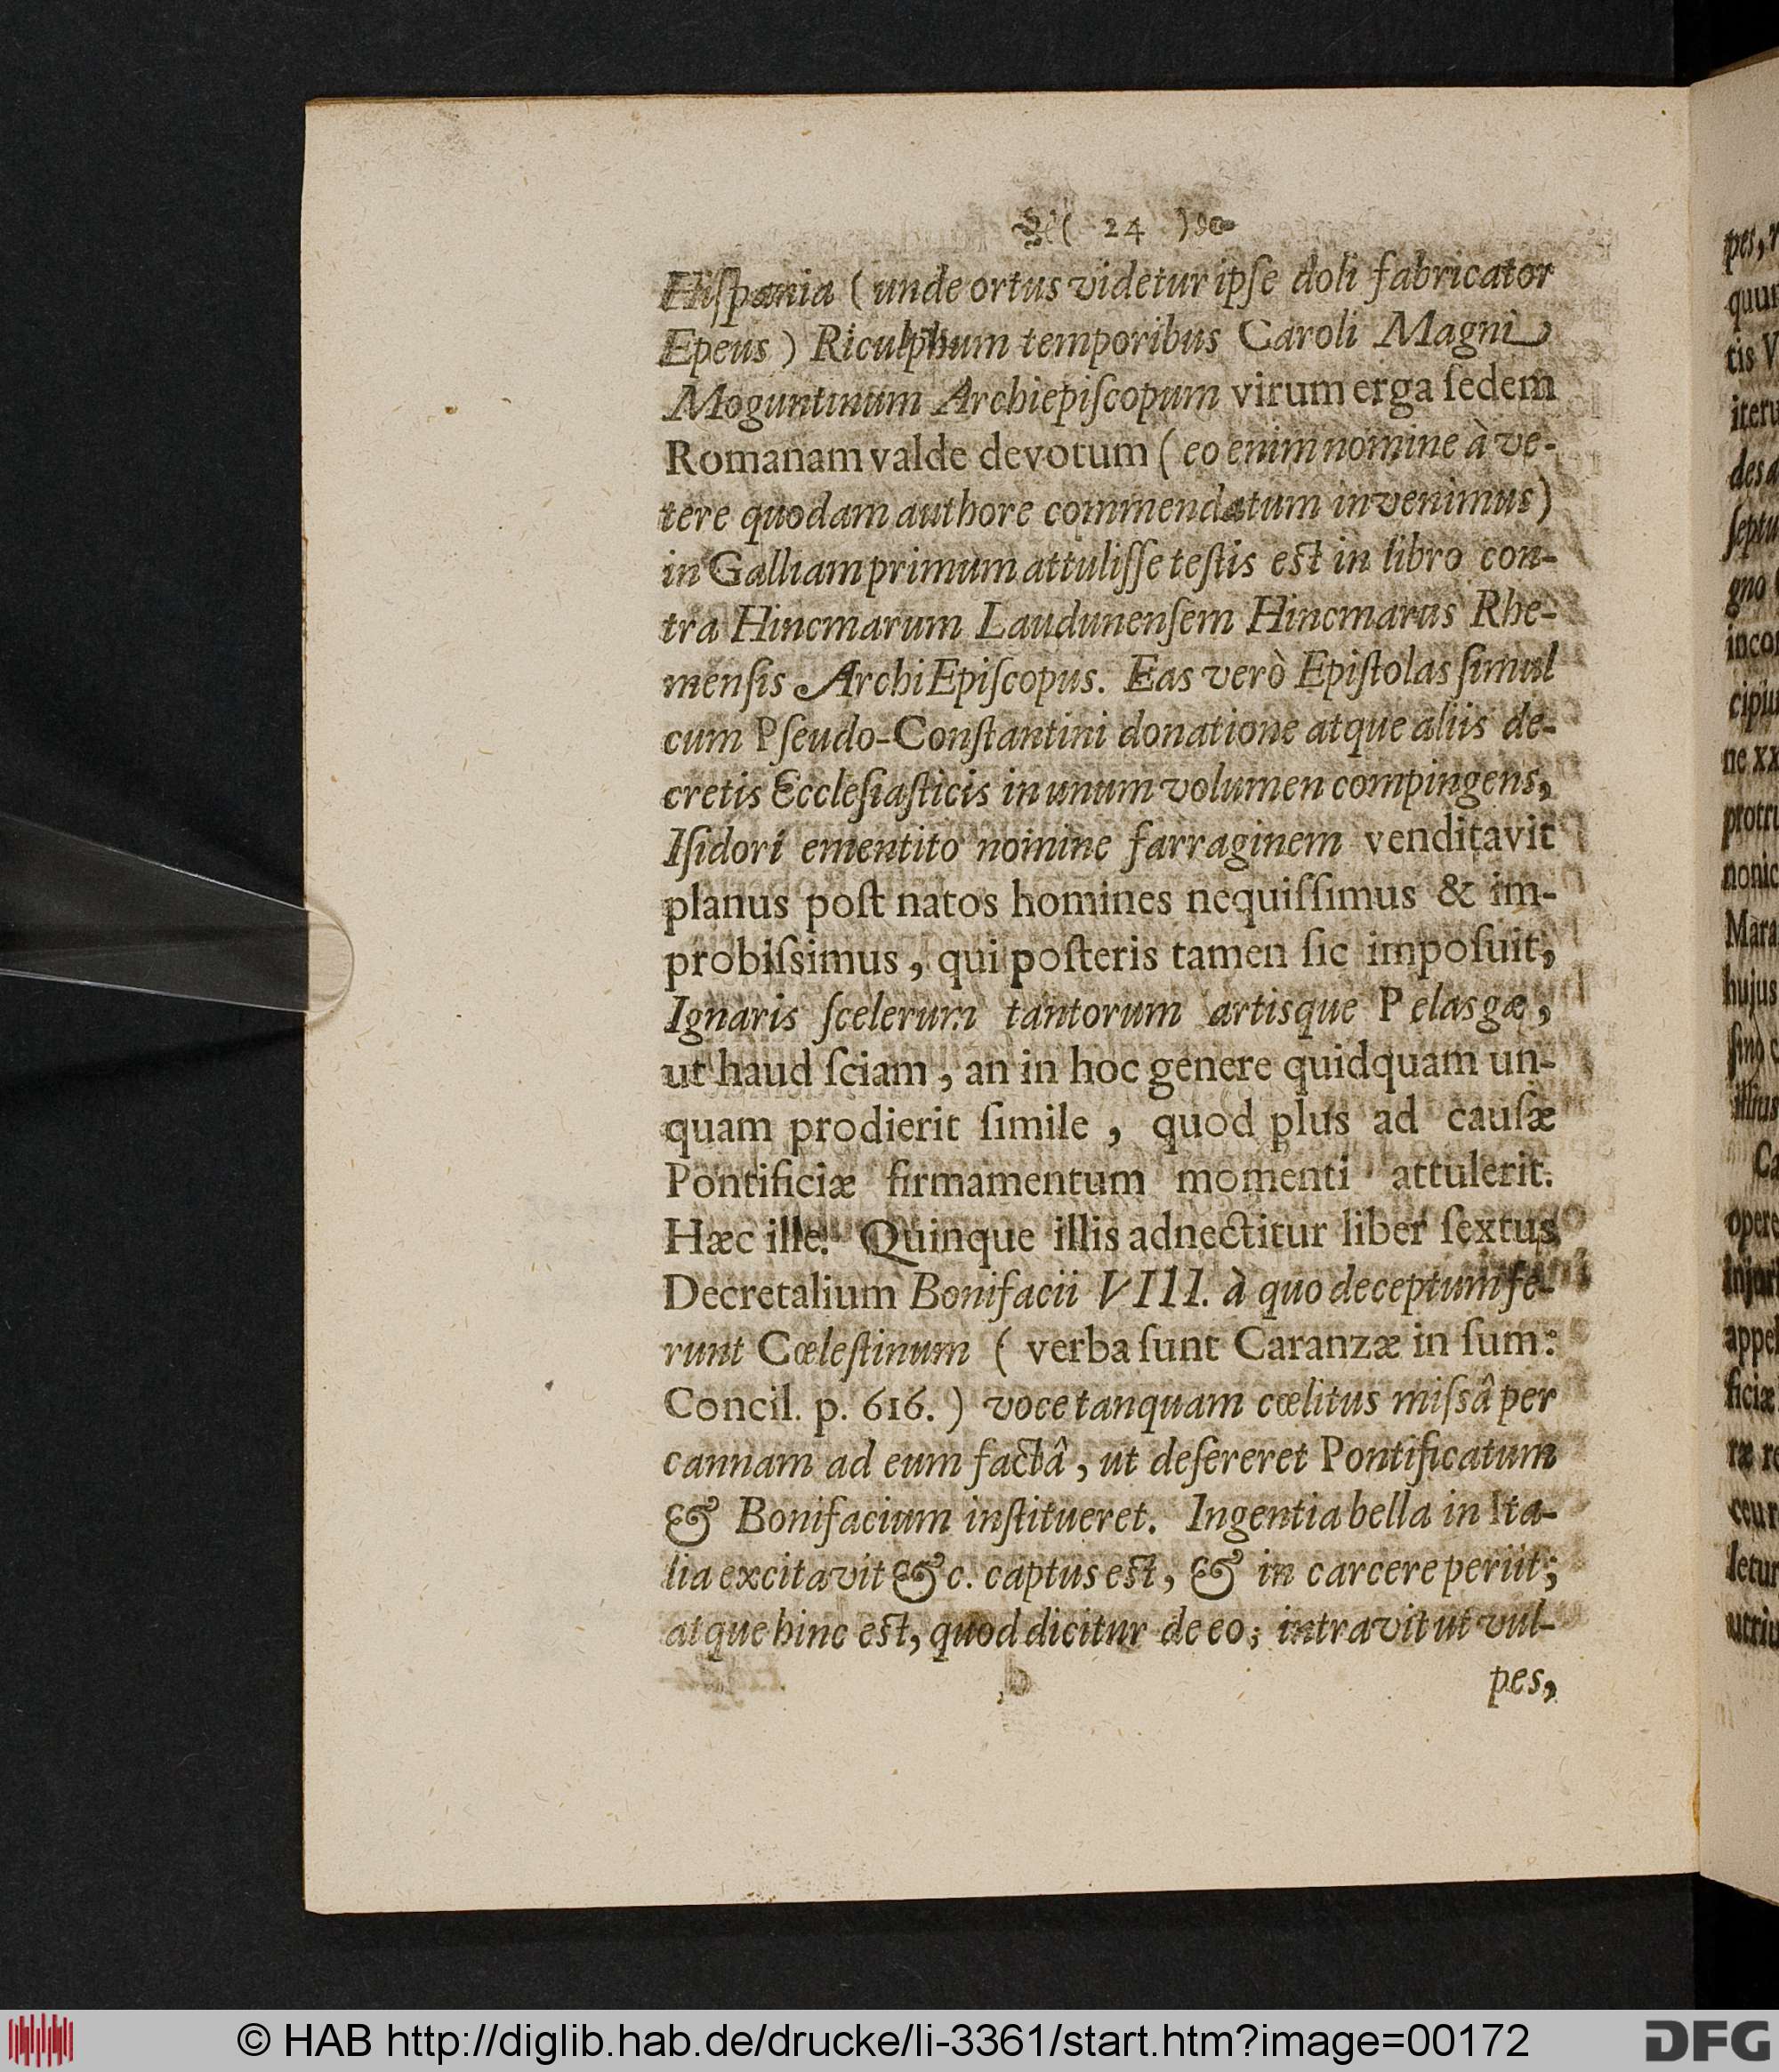 ( 24 )
Hiſpania ( unde ortus videtur ipſe doli fabricator
Epeus ) Riculphum temporibus Caroli Magni
Moguntinum Archiepiſcopum virum erga ſedem
Romanam valde devotum ( eo enim nomine à ve-
tere quodam authore commendatum invenimus )
in Galliam primum attuliſſe teſtis eſt in libro con-
tra Hincmarum Laudunenſem Hincmarus Rhe-
menſis ArchiEpiſcopus. Eas verò Epiſtolas ſimul
cum Pſeudo-Conſtantini donatione atque aliis de-
cretis Eccleſiaſticis in unum volumen compingens,
Iſidori ementito nomine farraginem venditavit
planus poſt natos homines nequiſſimus & im-
probiſsimus, qui poſteris tamen ſic impoſuit,
Ignaris ſcelerum tantorum artisque Pelasgæ,
ut haud ſciam, an in hoc genere quidquam un-
quam prodierit ſimile, quod plus ad cauſæ
Pontificiæ firmamentum momenti attulerit.
Hæc ille. Quinque illis adnectitur liber ſextus
Decretalium Bonifacii VIII. à quo deceptum fe-
runt Cœleſtinum ( verba ſunt Caranzæ in ſum:
Concil. p. 616. ) voce tanquam cœlitus miſsâ per
cannam ad eum factâ, ut deſereret Pontificatum
& Bonifacium inſtitueret. Ingentia bella in Ita-
lia excitavit &c. captus eſt, & in carcere periit;
atque hinc eſt, quod dicitur de eo; intravit ut vul-
pes,
pes,
tis V
des
gno
ne xx
nonic
Mara
hujus
illius
Ca
opere
appel
ficiæ
letur
© HAB http://diglib.hab.de/drucke/li-3361/start.htm?image=00172
DFG